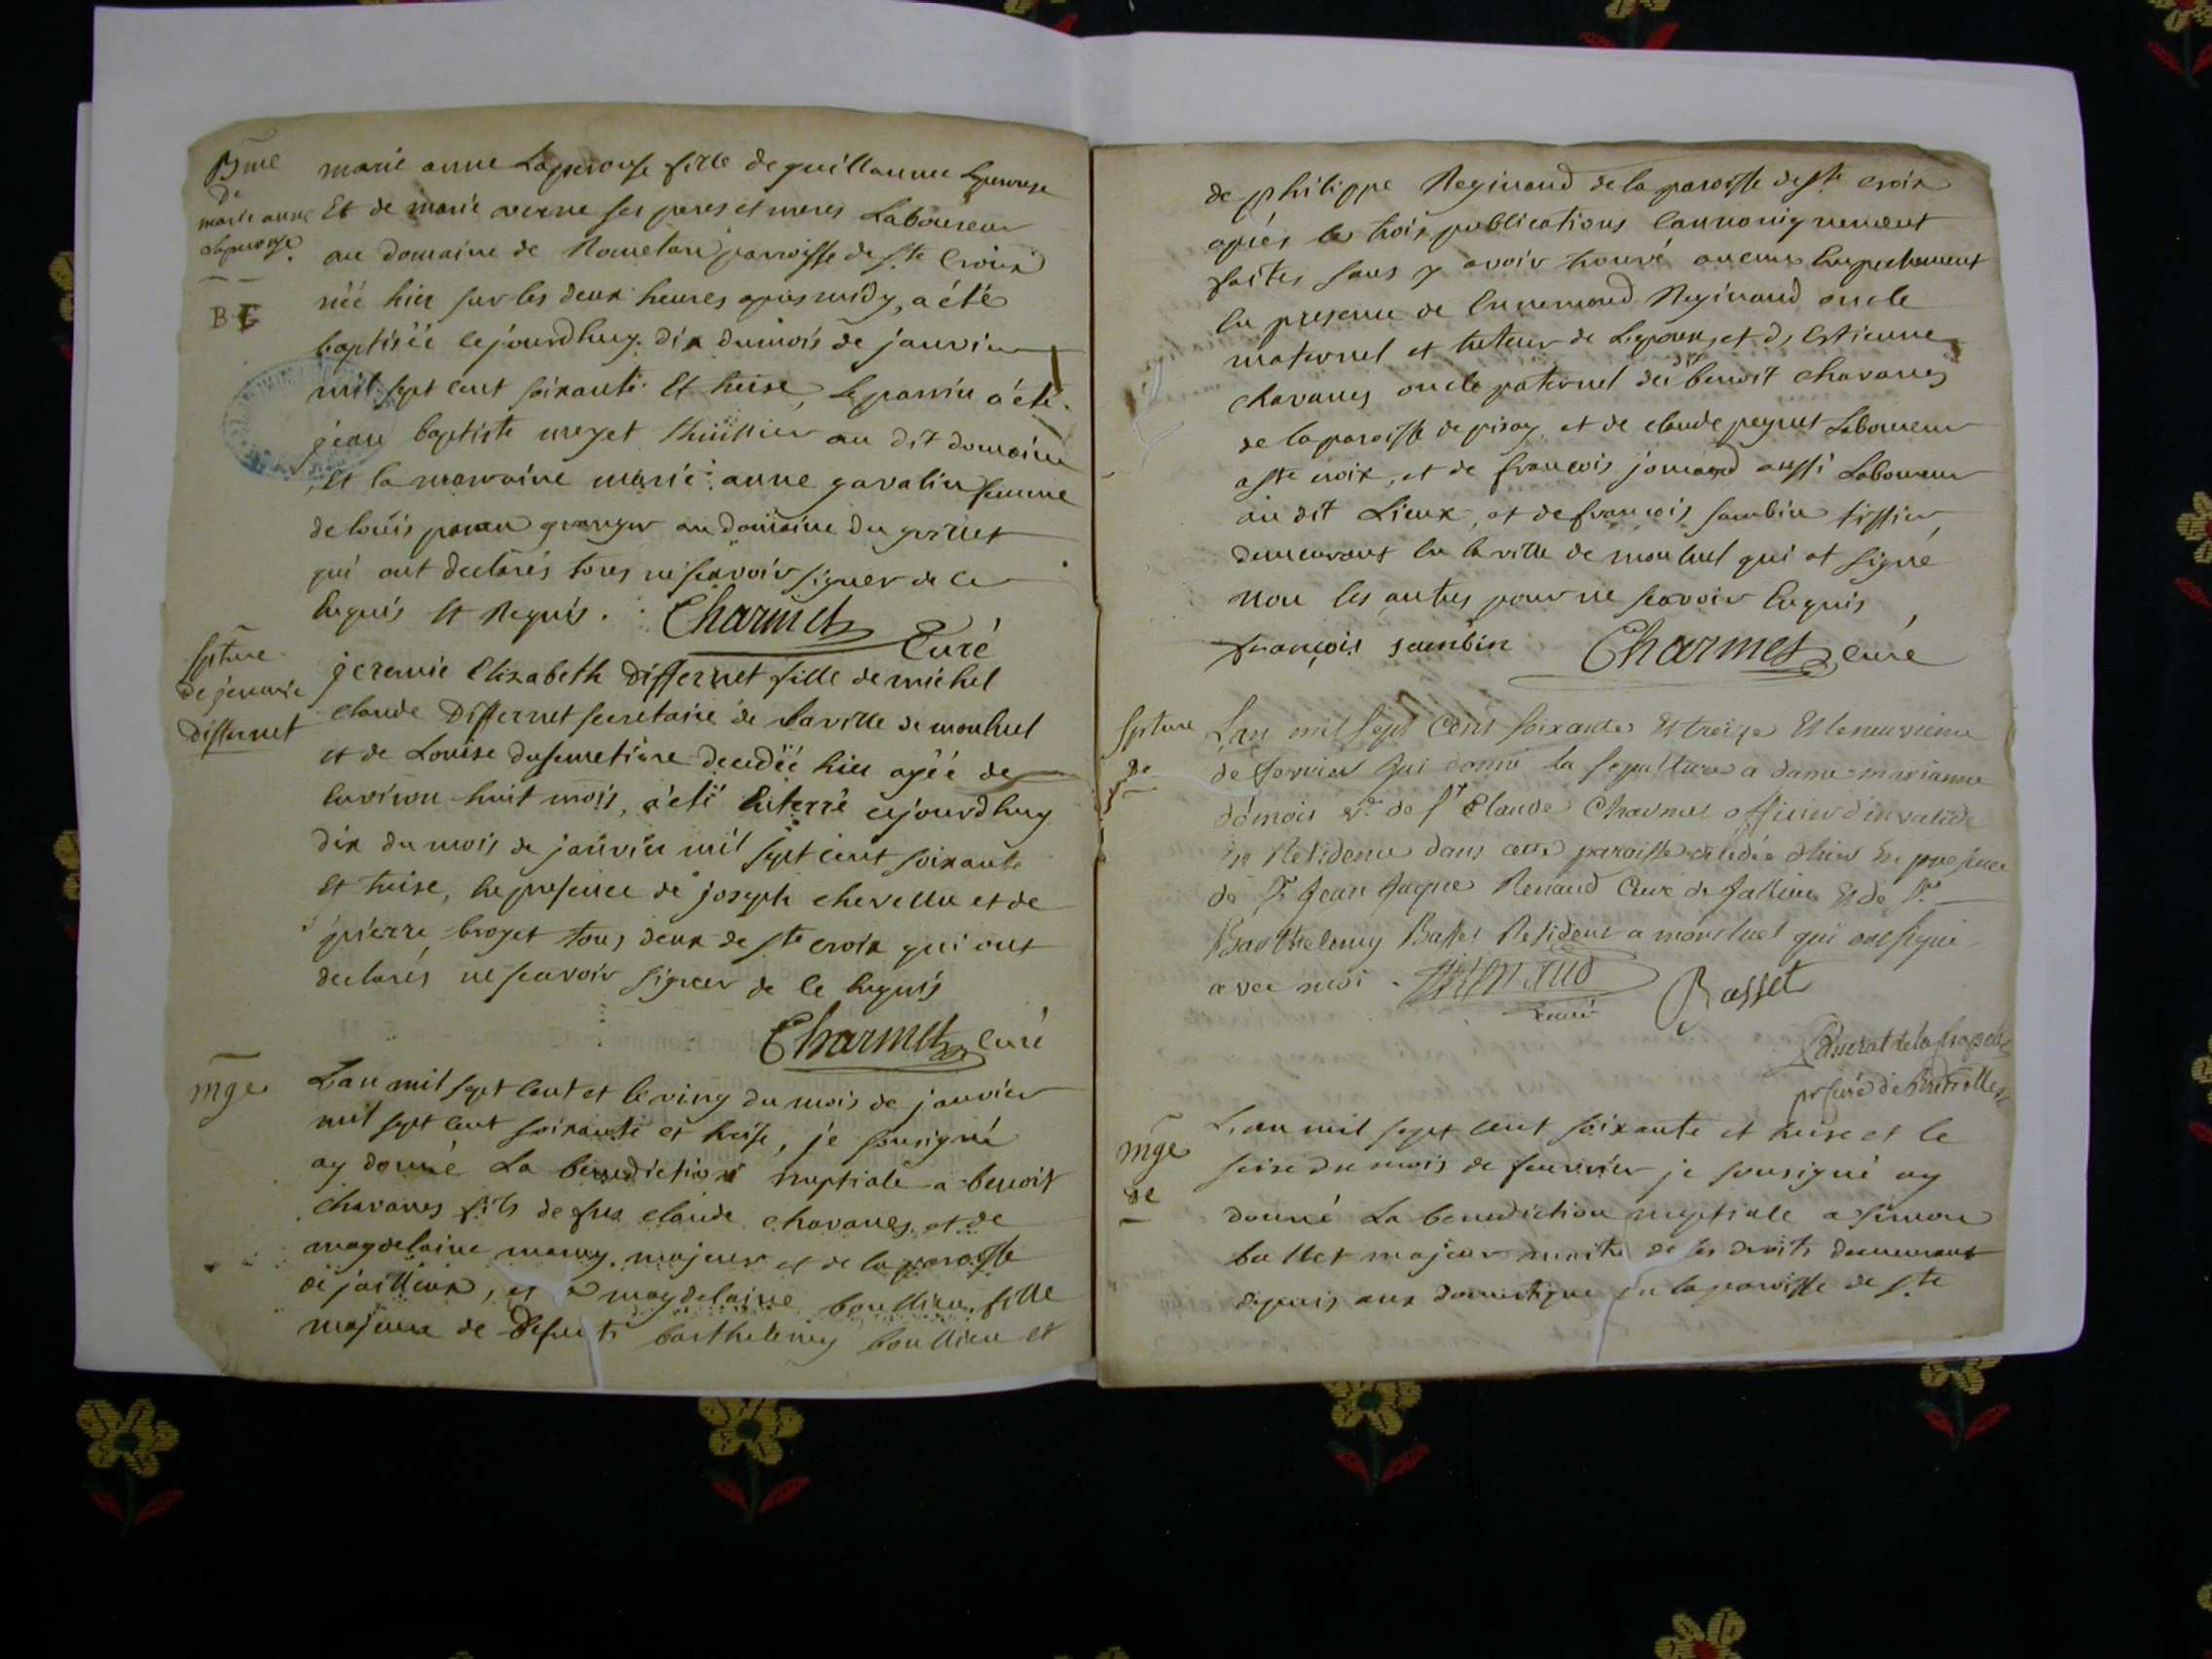 Bme
De
marie anne
Laperouse
B
marie anne Laperouse fille de guillaume Laperouse
Et de marie verne ses peres et meres Laboureur
au domaine de parroisse de ste Croix
néé hier sur les deux heures apres midy, a été
baptiséé cejourdhuy dix du mois de janvier
mil sept cent soixante Et treise, Le parrin a été
jean baptiste au dit domaine
Et la marraine marie anne gavalin femme
de loüis granger au domaine du
qui ont declarés tous ne scavoir signer de ce
Enquis Et Requis. Charmet Curé
Spture
de jeremie
Differnet
jeremie Elizabeth Differnet fille de michel
claude Differnet secretaire de la ville de monluel
et de Louise dusemetiere decedéé hier agéé de
Environ huit mois, a été Enterré cejourdhuy
dix du mois de janvier mil sept cent soixante
Et treise, En presence de joseph et de
pierre broyet tous deux de ste croix qui ont
declarés ne scavoir signer de ce Enquis
Charmet Curé
mge
L'an mil sept cent et le ving du mois de janvier
mil sept cent soixante et treise, je sousigné
ay donné La benediction nuptiale a benoit
chavanes fils de feu claude chavanes et de
magdelaine majeur et de la paroisse
de jaillieux, et a magdelaine boullieu fille
majeure de Defunts barthelemy boullieu et
de philippe Reginaud de la paroisse de ste croix
aprés les trois publications cannoniquement
faites sans y avoir trouvé aucuns Empechement
En presence de Reginaud oncle
maternel et tuteur de Lepouse, et d'Estienne
chavanes oncle paternel du dit benoit chavanes
de la paroisse de pisay, et de claude peynet Laboureur
a ste croix, et de françois jomard aussi Laboureur
au dit Lieux, et de francois sambin tissier
demeurant En la ville de monluel qui at signé
non les autres pour ne scavoir Enquis
françois sambin Charmet Curé
Spture
de
L'an mil sept cent soixante Et treize Et le neuvieme
de fevrier jai donné la sepulture a dame marianne
démois ve de sr Claude Charmet officier dinvalide
En Residence dans cette paroisse décédée dhier En presence
de Sr Jean Jaque Renaud Curé de Et de Sr
Barthelemy Basset Resident a monluel qui ont signé
avec moi. Renaud
curé
Basset
Passerat de la Chapelle
L'an mil sept cent soixante et treise et le
mge
de
seise du mois de feuvrier je sousigné ay
donné La benediction nuptiale a simon
bullet majeur maitre de ses droits demeurant
depuis ans domestique En la paroisse de ste